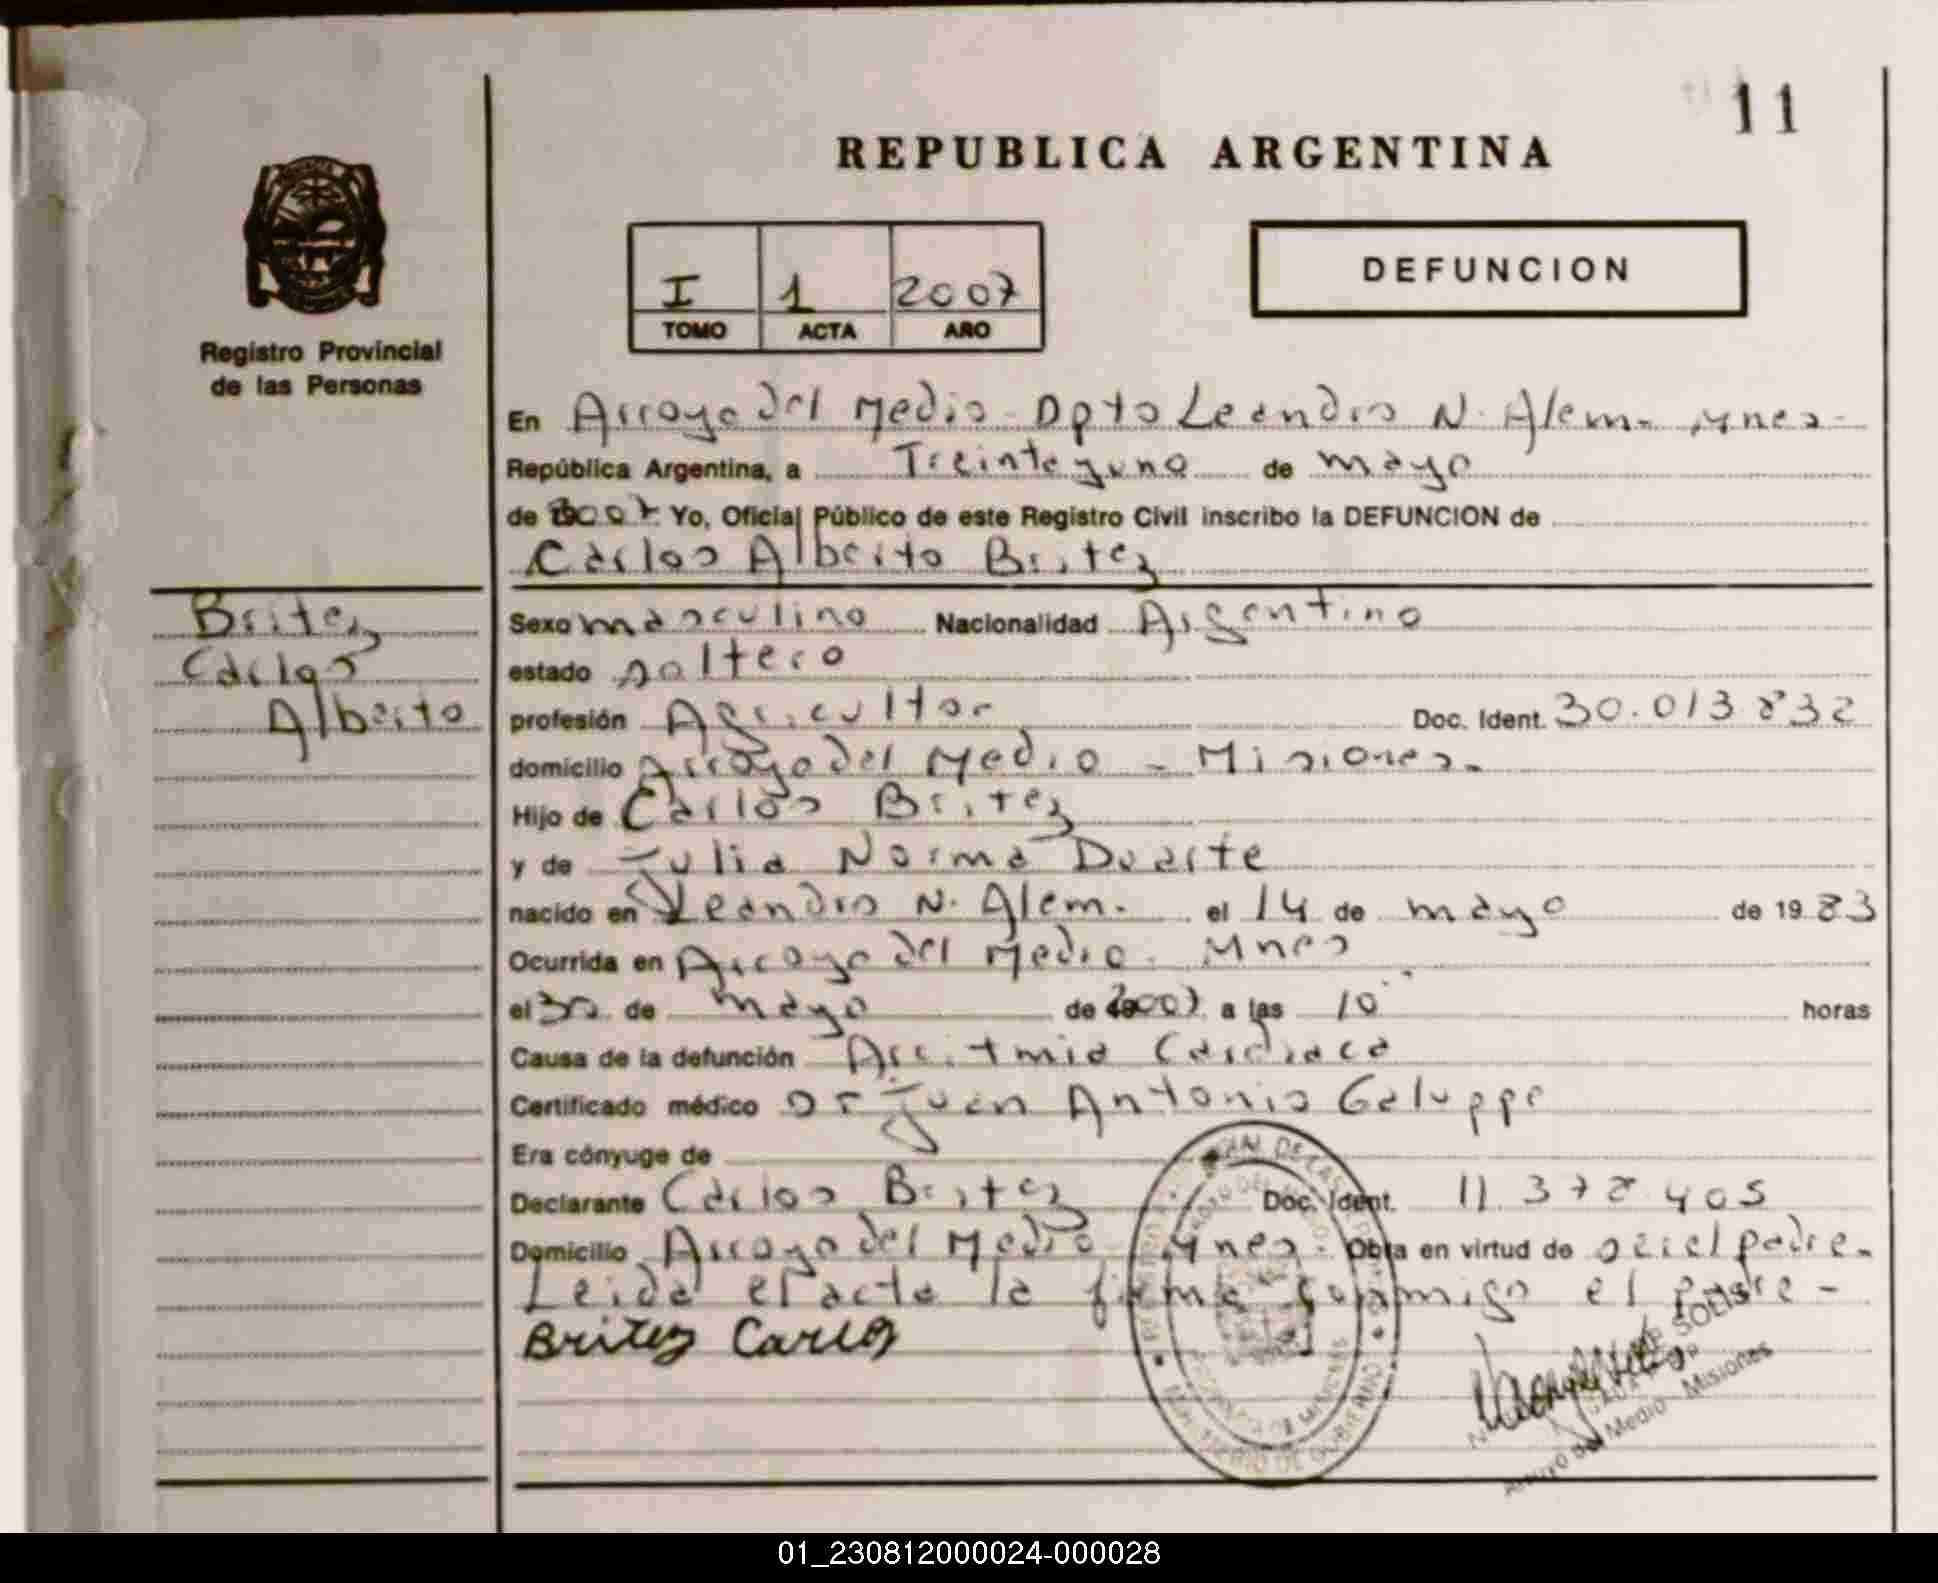 11
REPUBLICA ARGENTINA
I 1 2007
TOMO ACTA AÑO
DEFUNCION
Registro Provincial
de las Personas
En Arroyo del Medio - Dpto Leandro N. Alem - Mnes -
República Argentina, a Treinta y uno de mayo
de 2007 Yo, Oficial Público de este Registro Civil inscribo la DEFUNCION de
Carlos Alberto Britez
Britez
Carlos
Alberto
Sexo masculino Nacionalidad Argentino
estado soltero
profesión Agricultor Doc. Ident. 30.013832
domicilio Arroyo del Medio - Misiones.
Hijo de Carlos Britez
y de Julia Norma Duarte
nacido en Leandro N. Alem. el 14 de mayo de 1983
Ocurrida en Arroyo del Medio. Mnes
el 30 de mayo de 2007 a las 10 horas
Causa de la defunción Arritmia Cardiaca
Certificado médico Dr Juan Antonio Galuppo
Era cónyuge de
Declarante Carlos Britez Doc. Ident. 11.378.405
Domicilio Arroyo del Medio Mnes. Obra en virtud de ser el padre.
Leida el acta la firma conmigo el padre -
Britez Carlos
SOLIS
Arroyo del Medio - Misiones
PROVINCIA DE MISIONES
MINISTERIO DE GOBIERNO
01_230812000024-000028